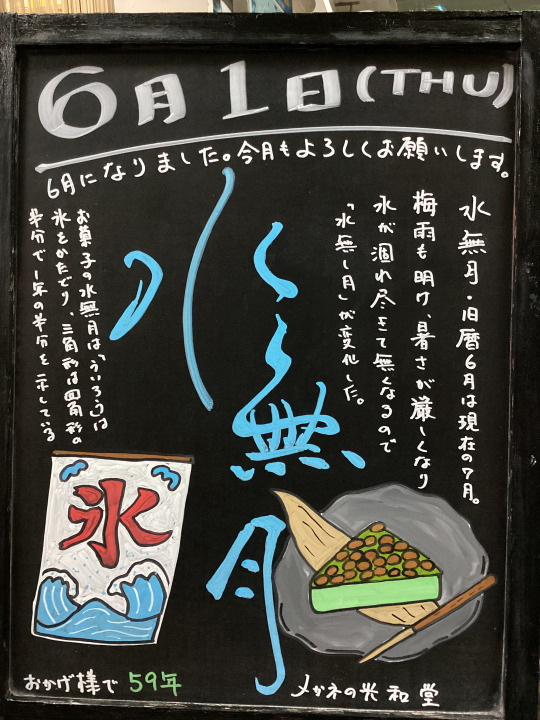 6月1日(THU)
6月になりました。今月もよろしくお願いします。
水無月・旧暦6月は現在の7月。
梅雨も明け、暑さが厳しくなり
水が涸れ尽きて無くなるので
「水無し月」が変化した。
水無月
お菓子の水無月は「ういろう」は
氷をかたどり、三角形は四角形の
半分で1年の半分を示している
氷
おかげ様で59年
メガネの光和堂